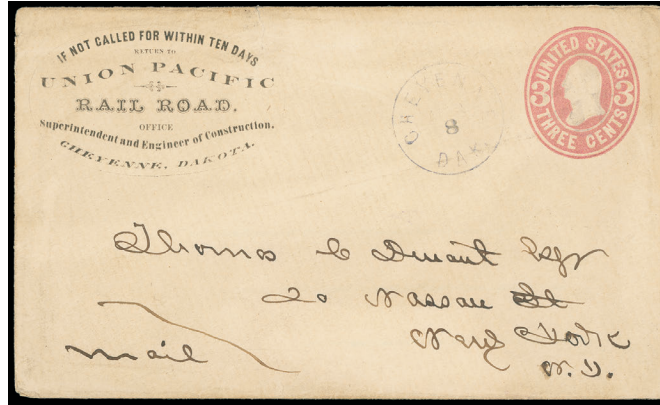 IF NOT CALLED FOR WITHIN TEN DAYS
RETURN TO
UNION PACIFIC
RAIL ROAD.
OFFICE
Superintendent and Engineer of Construction.
CHEYENNE, DAKOTA.
CHEYENNE
8
DAK.
UNITED STATES
3 3
THREE CENTS
Thomas C Durant Esqr
20 Nassau St
New York
N.Y.
Mail